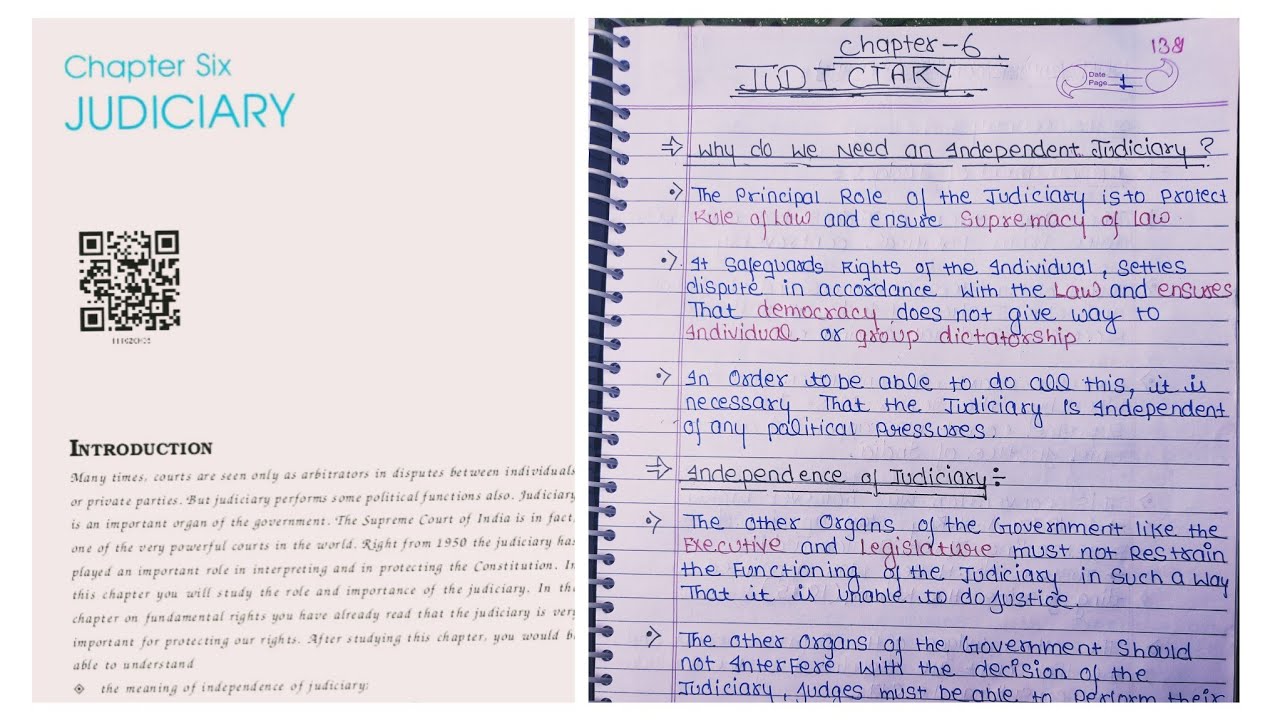 Chapter Six
JUDICIARY
INTRODUCTION
Many times, courts are seen only as arbitrators in disputes between individuals
or private parties. But judiciary performs some political functions also. Judiciary
is an important organ of the government. The Supreme Court of India is in fact,
one of the very powerful courts in the world. Right from 1950 the judiciary has
played an important role in interpreting and in protecting the Constitution. In
this chapter you will study the role and importance of the judiciary. In the
chapter on fundamental rights you have already read that the judiciary is very
important for protecting our rights. After studying this chapter, you would be
able to understand
❖ the meaning of independence of judiciary;
Chapter-6
138
JUDICIARY
Date
Page 1
⇒ Why do we Need an Independent Judiciary?
•> The Principal Role of the Judiciary is to Protect
Rule of Law and ensure Supremacy of law.
•> It Safeguards Rights of the Individual, Settles
dispute in accordance with the Law and ensures
That democracy does not give way to
Individual or group dictatorship.
•> In Order to be able to do all this, it is
necessary That the Judiciary is Independent
of any political Pressures.
⇒ Independence of Judiciary÷
•> The other Organs of the Government like the
Executive and Legislature must not Restrain
the Functioning of the Judiciary in Such a Way
That it is unable to do justice.
•> The other organs of the Government Should
not Interfere With the decision of the
Judiciary, Judges must be able to perform their